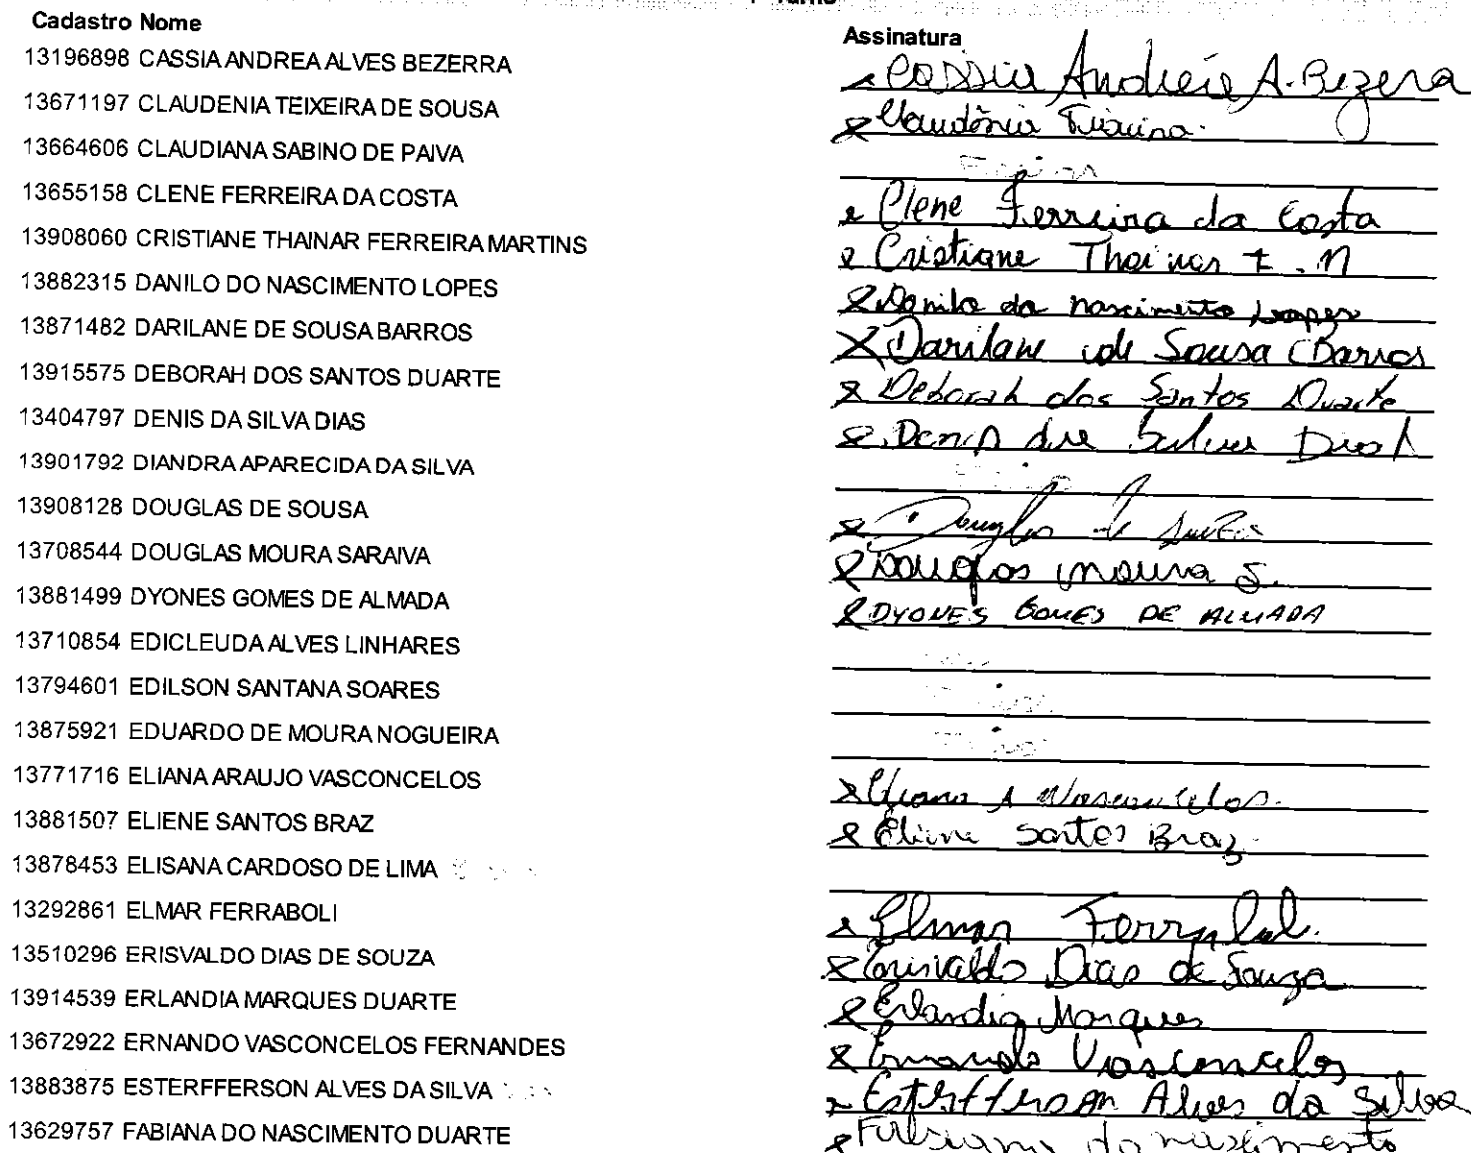 Cadastro Nome Assinatura
13196898 CASSIA ANDREA ALVES BEZERRA Cassia Andreia A. Bezera
13671197 CLAUDENIA TEIXEIRA DE SOUSA Claudênia
13664606 CLAUDIANA SABINO DE PAIVA
13655158 CLENE FERREIRA DA COSTA Clene Ferreira da Costa
13908060 CRISTIANE THAINAR FERREIRA MARTINS Cristiane Thainar F. M
13882315 DANILO DO NASCIMENTO LOPES Danilo do nascimento Lopes
13871482 DARILANE DE SOUSA BARROS Darilane de Sousa Barros
13915575 DEBORAH DOS SANTOS DUARTE Deborah dos Santos Duarte
13404797 DENIS DA SILVA DIAS Denis da Silva Dias
13901792 DIANDRA APARECIDA DA SILVA
13908128 DOUGLAS DE SOUSA Douglas de Souza
13708544 DOUGLAS MOURA SARAIVA Douglas Moura S.
13881499 DYONES GOMES DE ALMADA DYONES GOMES DE ALMADA
13710854 EDICLEUDA ALVES LINHARES
13794601 EDILSON SANTANA SOARES
13875921 EDUARDO DE MOURA NOGUEIRA
13771716 ELIANA ARAUJO VASCONCELOS Eliana A Vasconcelos.
13881507 ELIENE SANTOS BRAZ Eliene Santos Braz
13878453 ELISANA CARDOSO DE LIMA
13292861 ELMAR FERRABOLI Elmar
13510296 ERISVALDO DIAS DE SOUZA Erisvaldo Dias de Souza
13914539 ERLANDIA MARQUES DUARTE Erlandia Marques
13672922 ERNANDO VASCONCELOS FERNANDES Ernando Vasconcelos
13883875 ESTERFFERSON ALVES DA SILVA Esterfferson Alves da Silva
13629757 FABIANA DO NASCIMENTO DUARTE Fabiana do nascimento